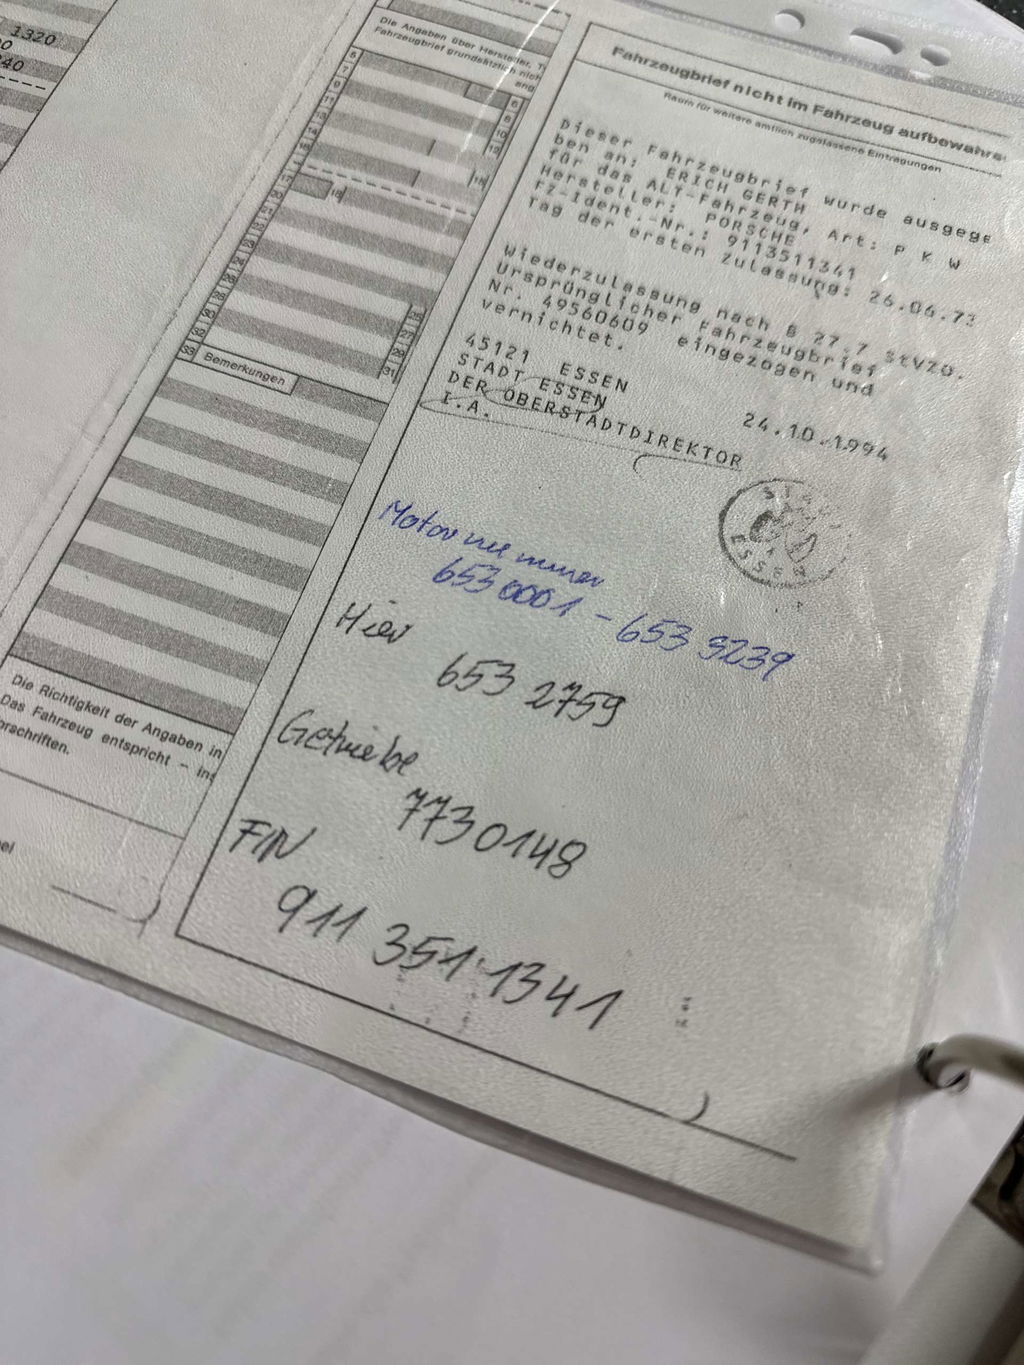 1320
40
Die Angaben über Hersteller, T
Fahrzeugbrief grundsätzlich nich
eng
33
31
Bemerkungen
Die Richtigkeit der Angaben in
Das Fahrzeug entspricht – in
orschriften.
el
Fahrzeugbrief nicht im Fahrzeug aufbewahre
Raum für weitere amtlich zugelassene Eintragungen
Dieser Fahrzeugbrief wurde ausgege
ben an: ERICH GERTH
für das ALT-Fahrzeug, Art: P K W
Hersteller: PORSCHE
FZ-Ident.-Nr.: 9113511341
Tag der ersten Zulassung: 26.06.73
Wiederzulassung nach § 27.7 StVZO.
Ursprünglicher Fahrzeugbrief
Nr. 49560609 eingezogen und
vernichtet.
45121 ESSEN
24.10.1994
STADT ESSEN
DER OBERSTADTDIREKTOR
I.A.
STA
ESSEN
Motornummer
653 0001 – 653 3239
Hier
653 2759
Getriebe
7730148
FIN
911 351 1341